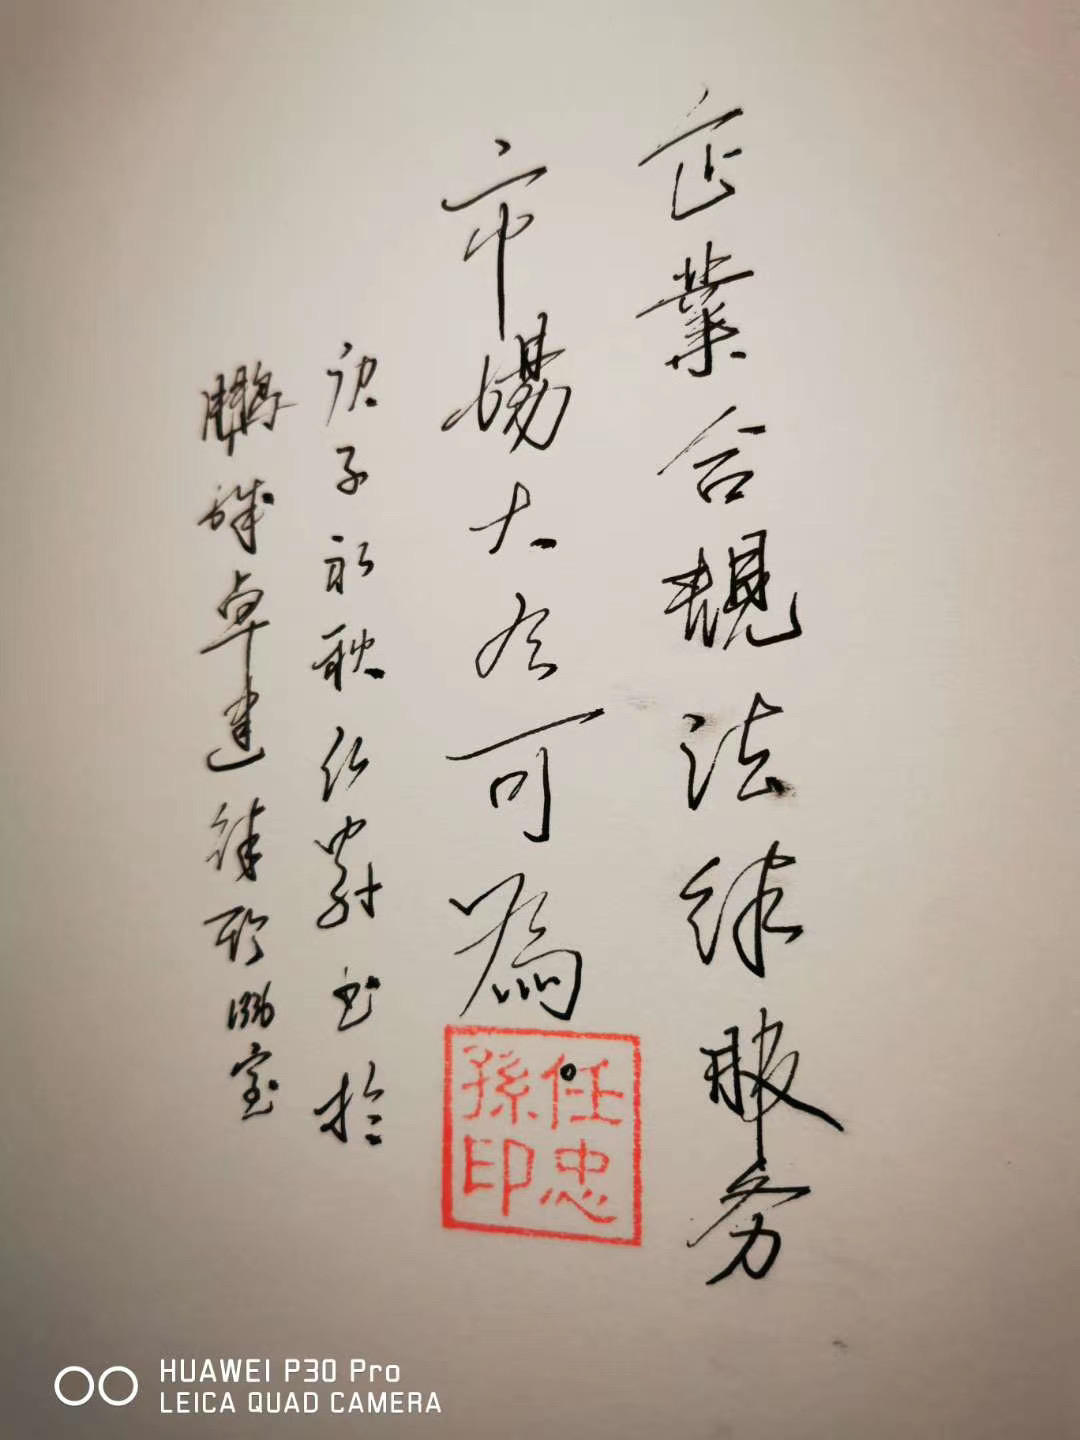 企業合規法律服务
市場大有可為
庚子初秋仁爵书於
鵬城卓建律所
室
任忠
孫印
HUAWEI P30 Pro
LEICA QUAD CAMERA